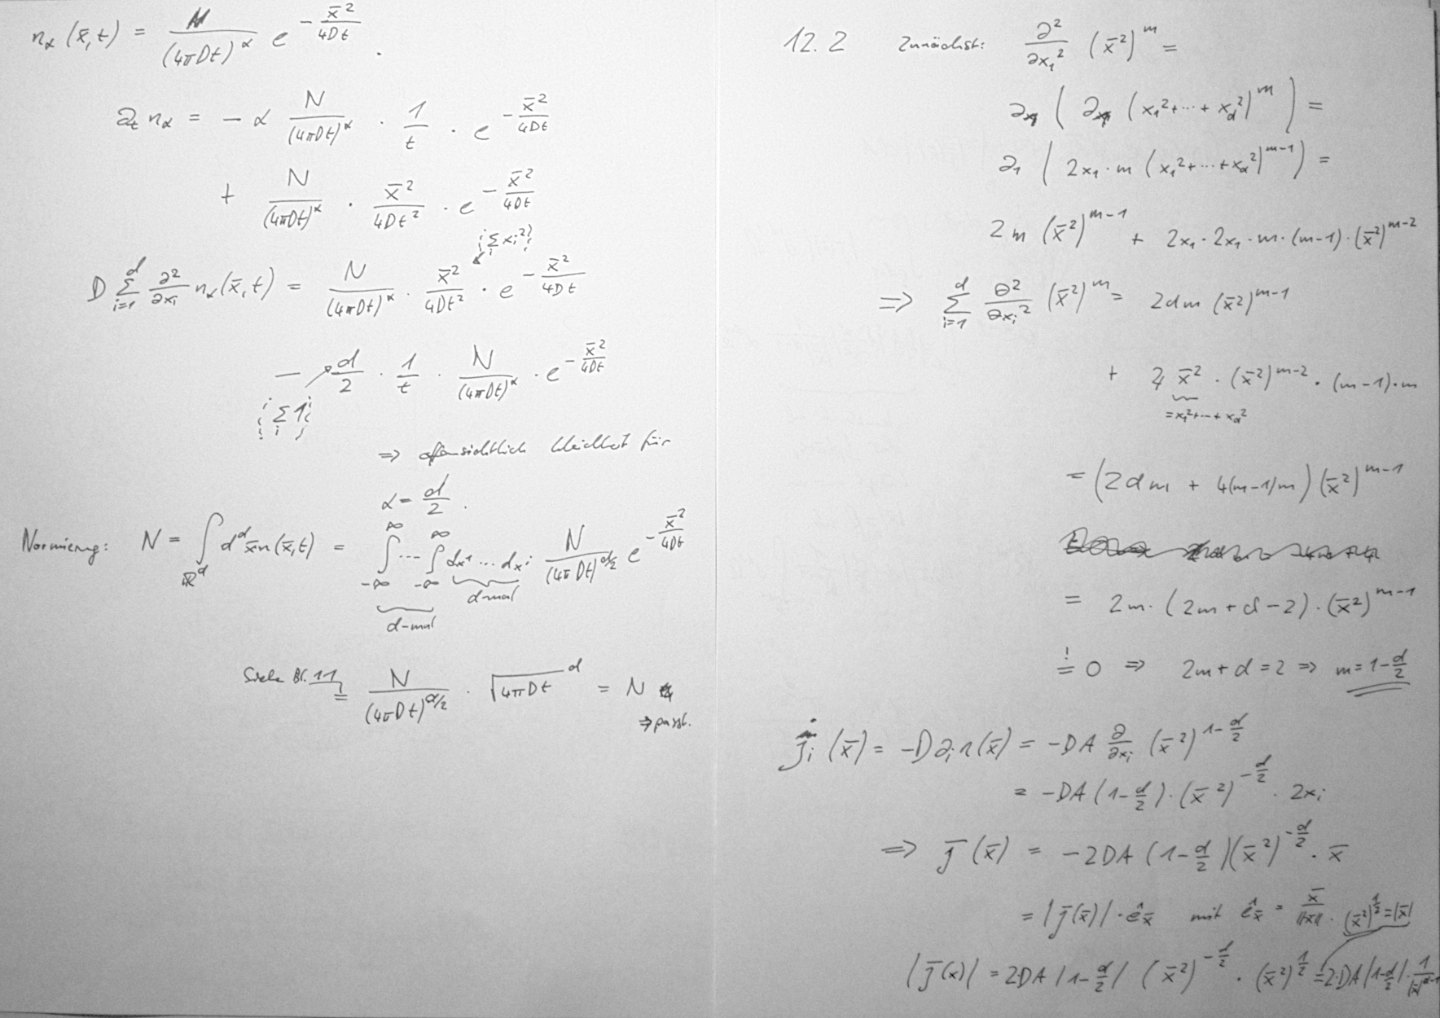 n_α (x̄,t) = N/(4πDt)^α e^(-x̄²/4Dt) .
∂_t n_α = - α N/(4πDt)^α · 1/t · e^(-x̄²/4Dt)
+ N/(4πDt)^α · x̄²/4Dt² · e^(-x̄²/4Dt)
(Σ_i x_i²)
D Σ_{i=1}^d ∂²/∂x_i n_α(x̄,t) = N/(4πDt)^α · x̄²/4Dt² · e^(-x̄²/4Dt)
- d/2 · 1/t · N/(4πDt)^α · e^(-x̄²/4Dt)
Σ_i 1
=> offensichtlich Gleichheit für
α = d/2 .
Normierung: N = ∫_{ℝ^d} d^d x̄ n(x̄,t) = ∫_{-∞}^{∞} ... ∫_{-∞}^{∞} dx_1 ... dx_i N/(4πDt)^{d/2} e^(-x̄²/4Dt)
d-mal d-mal
Siehe Bl. 11 = N/(4πDt)^{d/2} · √(4πDt)^d = N
=> passt.
12.2 Zunächst: ∂²/∂x_1² (x̄²)^m =
∂_1 ( ∂_1 (x_1² + ... + x_d²)^m ) =
∂_1 ( 2x_1 · m (x_1² + ... + x_d²)^{m-1} ) =
2m (x̄²)^{m-1} + 2x_1 · 2x_1 · m · (m-1) · (x̄²)^{m-2}
=> Σ_{i=1}^d ∂²/∂x_i² (x̄²)^m = 2dm (x̄²)^{m-1}
+ 4 x̄² · (x̄²)^{m-2} · (m-1) · m
= x_1² + ... + x_d²
= (2dm + 4(m-1)m) (x̄²)^{m-1}
= 2m · (2m + d - 2) · (x̄²)^{m-1}
=! 0 => 2m + d = 2 => m = 1 - d/2
j_i (x̄) = -D ∂_i n(x̄) = -DA ∂/∂x_i (x̄²)^{1-d/2}
= -DA (1 - d/2) · (x̄²)^{-d/2} · 2x_i
=> j̄ (x̄) = -2DA (1 - d/2) (x̄²)^{-d/2} · x̄
= |j̄(x̄)| · ê_x̄ mit ê_x̄ = x̄/|x̄| . (x̄²)^{1/2} = |x̄|
|j̄(x)| = 2DA |1 - d/2| (x̄²)^{-d/2} · (x̄²)^{1/2} = 2·DA |1 - d/2| · 1/|x̄|^{d-1}